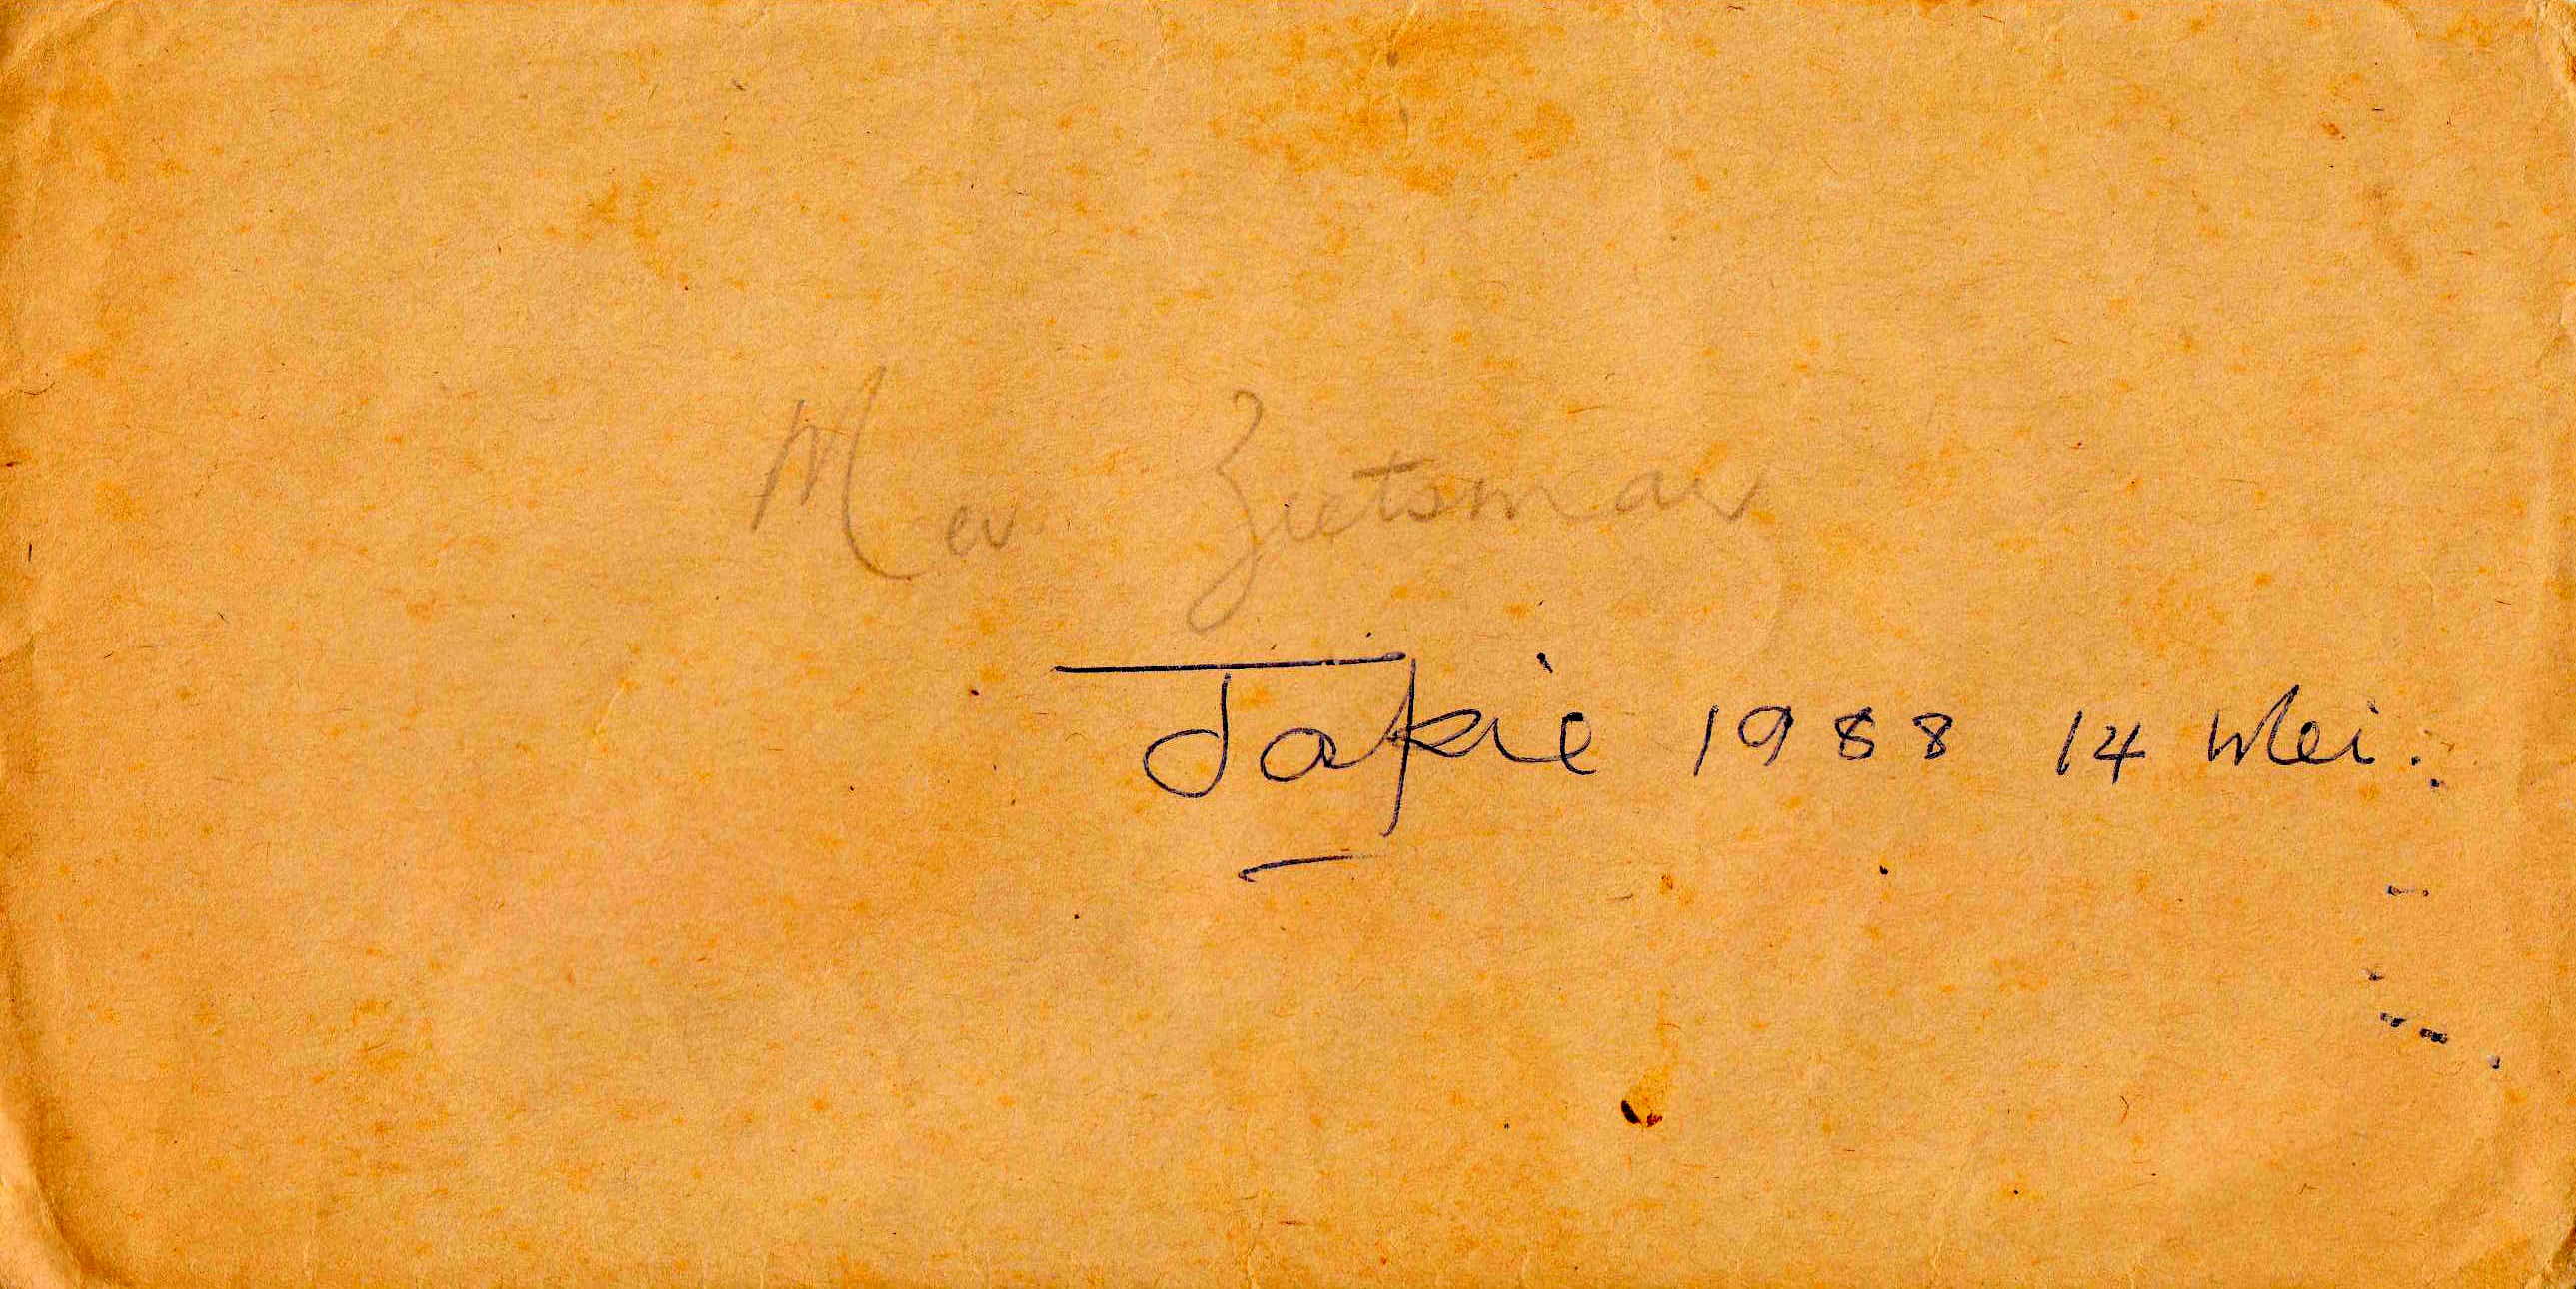 Mev. Zietsman
Jakie 1988 14 Mei.